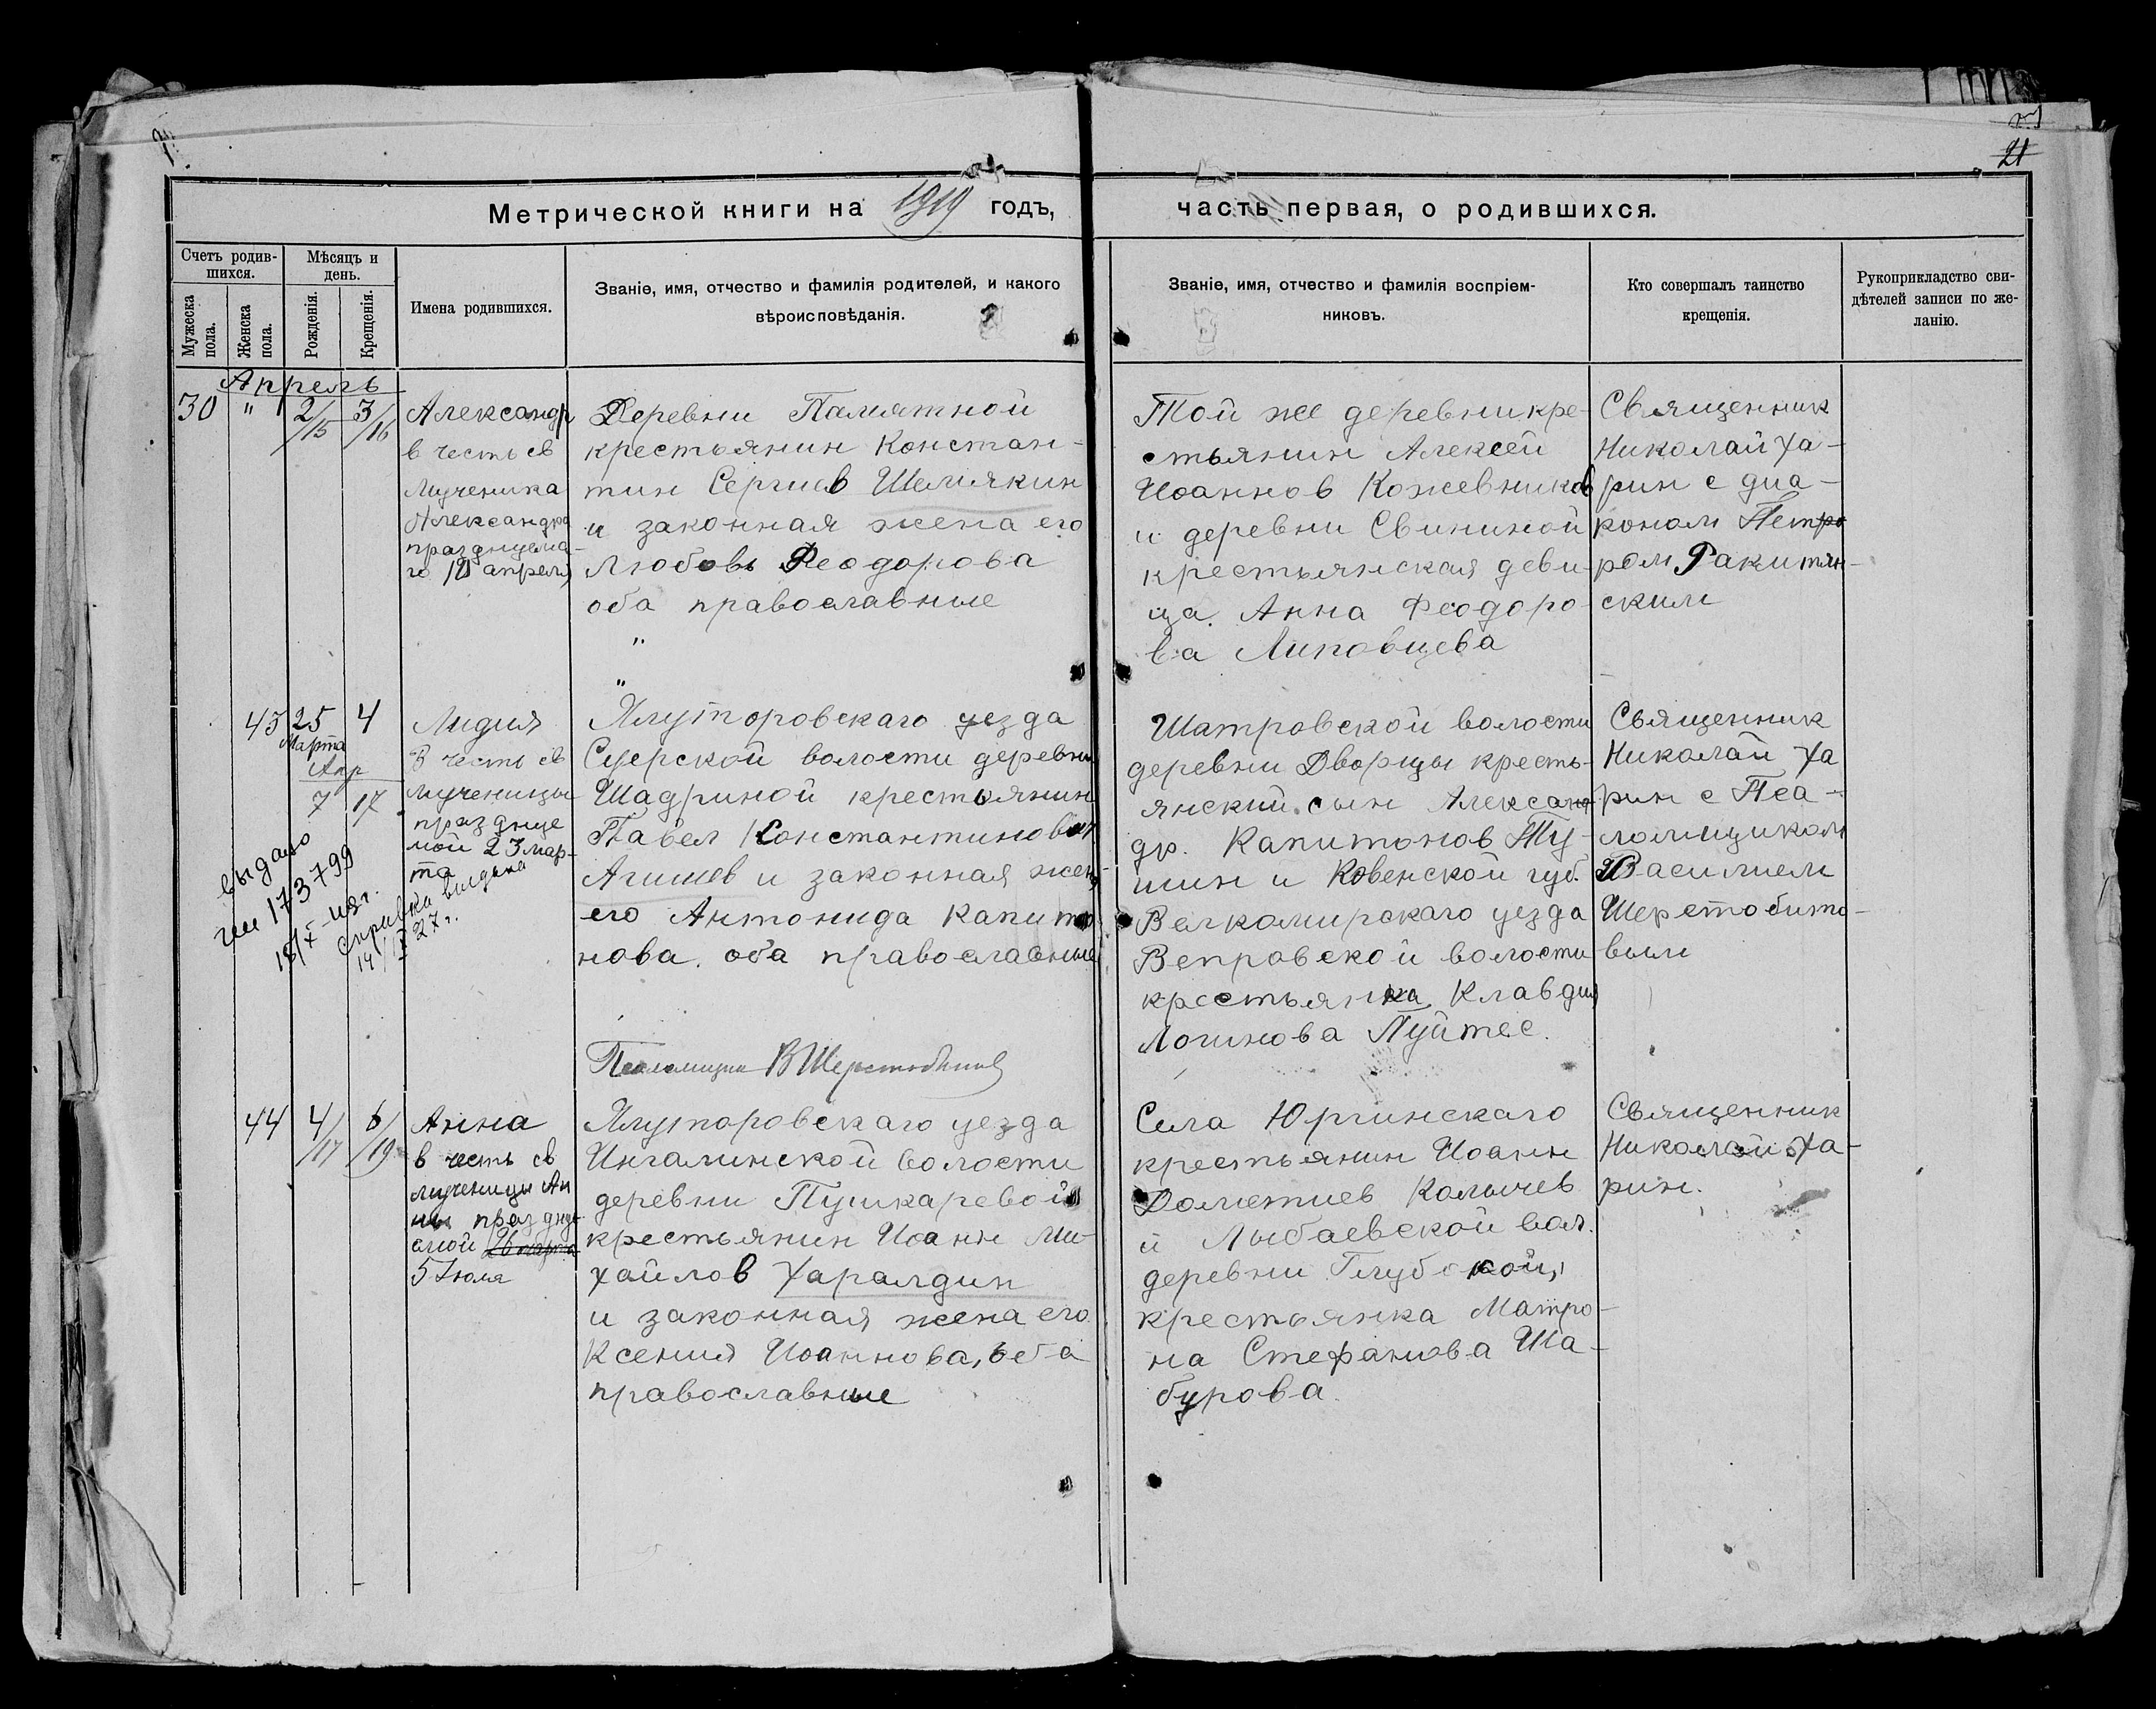 21
Метрической книги на 1919 годъ,
часть первая, о родившихся.
Счетъ родив-
шихся.
Мужеска пола.
Женска пола.
Мѣсяцъ и
день.
Рожденія.
Крещенія.
Имена родившихся.
Званіе, имя, отчество и фамилія родителей, и какого
вѣроисповѣданія.
Званіе, имя, отчество и фамилія воспріем-
никовъ.
Кто совершалъ таинство
крещенія.
Рукоприкладство сви-
дѣтелей записи по же-
ланію.
Апрель
30 " 2/15 3/16
Александр
в честь св
Мученика
Александра
го 10 апреля
Деревни Памятной
крестьянин Констан-
тин Сергиев Шемякин
и законная жена его
Любовь Феодорова
оба православные
"
"
Той же деревни кре-
стьянин Алексей
Иоаннов Кожевников
и деревни Свининой
крестьянская деви-
ца Анна Феодоро-
ва Липовцева
Священник
Николай Ха-
рин с диа-
коном Пет
ром Ракитян-
ским
43 25 4
Марта
Апр
7 17
Лидия
В честь св
мученицы
празднуе
мой 23 мар-
та
выдано
173799
справка выдана
27 г.
Ялуторовскаго уезда
Суерской волости деревни
Шадриной крестьянин
Павел Константинов
Агишев и законная жена
его Антонида Капито
нова, оба православные
Псаломщик В Шерстобитов
Шатровской волости
деревни Дворцы кресть-
янский сын Алексан
др. Капитонов Ту-
шин и Ковенской губ.
Велкомирскаго уезда
Вепровской волости
крестьянка Клавдия
Логинова Пуйтес.
Священник
Николай Ха
рин с Пса-
ломщиком
Василием
Шерстобито-
вым
44 4/17 6/19
Анна
в честь св
мученицы Ан
ны праздну
емой 26 марта
5 Июля
Ялуторовскаго уезда
Ингалинской волости
деревни Пушкаревой
крестьянин Иоанн Ми-
хайлов Харалдин
и законная жена его
Ксения Иоаннова, оба
православные
Села Юргинскаго
крестьянин Иоанн
Дометиев Колычев
и Лыбаевской вол.
деревни Глубокой,
крестьянка Матро-
на Стефанова Ша-
бурова.
Священник
Николай Ха-
рин.